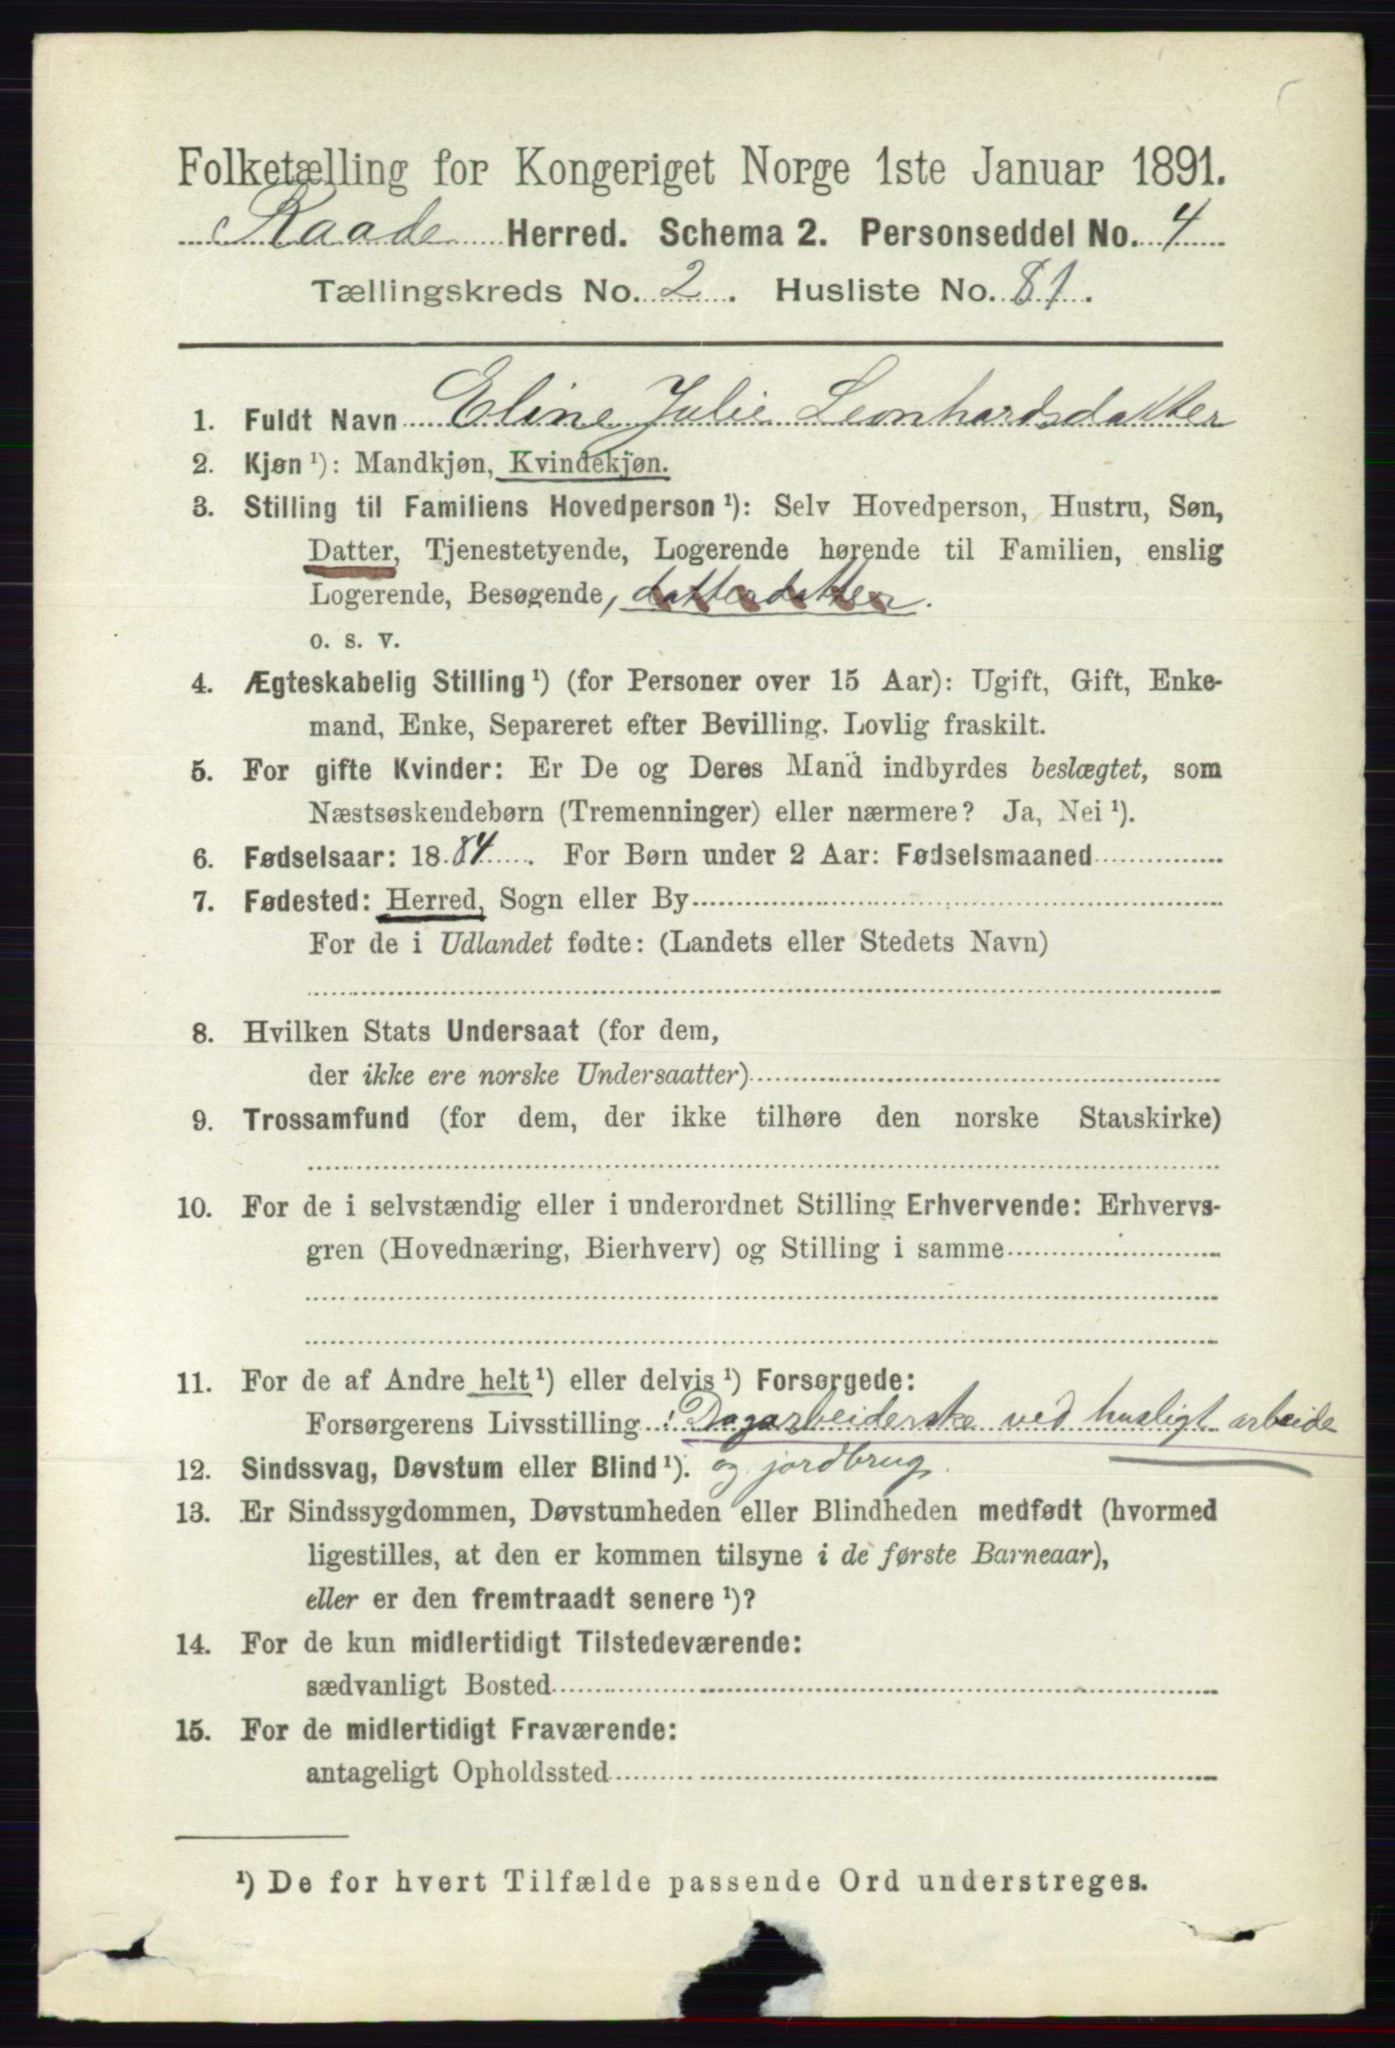 Folketælling for Kongeriget Norge 1ste Januar 1891.
Raade Herred. Schema 2. Personseddel No. 4
Tællingskreds No. 2. Husliste No. 81.
1. Fuldt Navn Eline Julie Leonhardsdatter
2. Kjøn ¹): Mandkjøn, Kvindekjøn.
3. Stilling til Familiens Hovedperson ¹): Selv Hovedperson, Hustru, Søn,
Datter, Tjenestetyende, Logerende hørende til Familien, enslig
Logerende, Besøgende, datterdatter.
o. s. v.
4. Ægteskabelig Stilling ¹) (for Personer over 15 Aar): Ugift, Gift, Enke-
mand, Enke, Separeret efter Bevilling. Lovlig fraskilt.
5. For gifte Kvinder: Er De og Deres Mand indbyrdes beslægtet, som
Næstsøskendebørn (Tremenninger) eller nærmere? Ja, Nei ¹).
6. Fødselsaar: 1884. For Børn under 2 Aar: Fødselsmaaned
7. Fødested: Herred, Sogn eller By
For de i Udlandet fødte: (Landets eller Stedets Navn)
8. Hvilken Stats Undersaat (for dem,
der ikke ere norske Undersaatter)
9. Trossamfund (for dem, der ikke tilhøre den norske Statskirke)
10. For de i selvstændig eller i underordnet Stilling Erhvervende: Erhvervs-
gren (Hovednæring, Bierhverv) og Stilling i samme
11. For de af Andre helt ¹) eller delvis ¹) Forsørgede:
Forsørgerens Livsstilling : Dagarbeiderske ved husligt arbeide
12. Sindssvag, Døvstum eller Blind ¹). og jordbrug.
13. Er Sindssygdommen, Døvstumheden eller Blindheden medfødt (hvormed
ligestilles, at den er kommen tilsyne i de første Barneaar),
eller er den fremtraadt senere ¹)?
14. For de kun midlertidigt Tilstedeværende:
sædvanligt Bosted
15. For de midlertidigt Fraværende:
antageligt Opholdssted
¹) De for hvert Tilfælde passende Ord understreges.